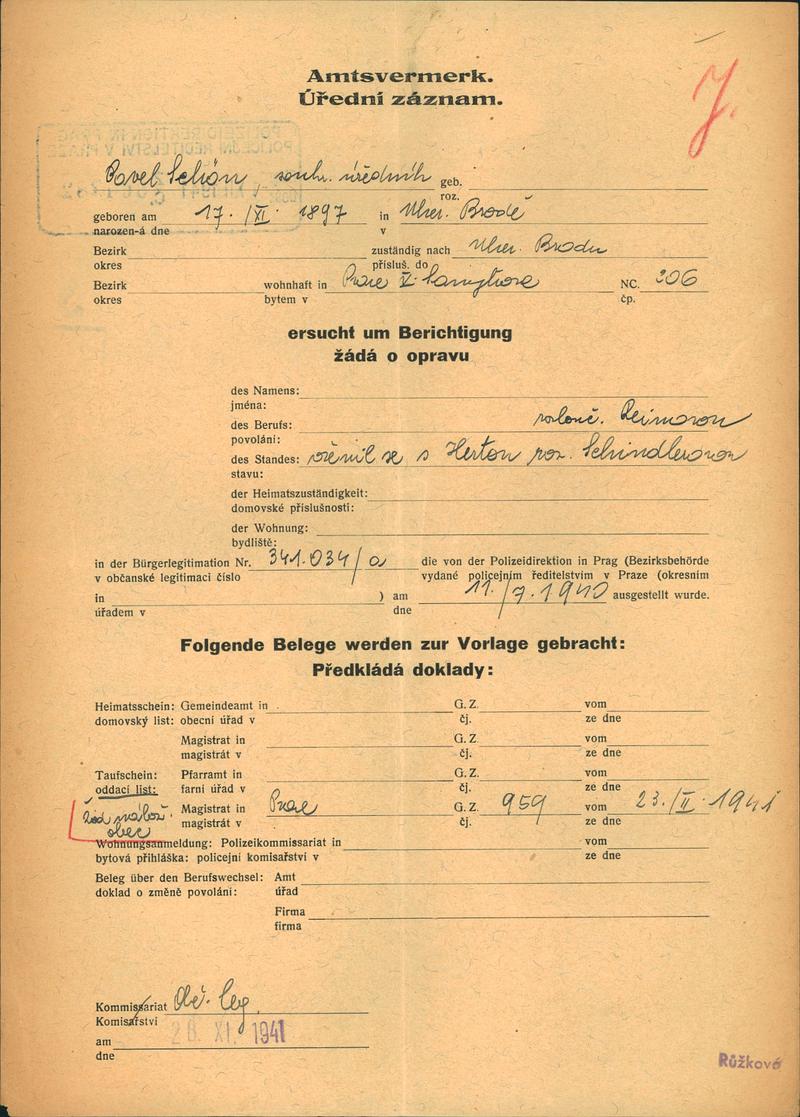 Amtsvermerk.
Úřední záznam.
J.
Pavel Schön, soukr. úředník geb.
roz.
geboren am 17. /XI. 1897 in Uher. Brodě
narozen-á dne v
Bezirk zuständig nach Uher. Brodu
okres přísluš. do
Bezirk wohnhaft in Praze V. NC. 206
okres bytem v čp.
ersucht um Berichtigung
žádá o opravu
des Namens:
jména:
des Berufs:
povolání:
des Standes: oženil se s Hertou roz. Schindlerovou
stavu:
der Heimatszuständigkeit:
domovské příslušnosti:
der Wohnung:
bydliště:
in der Bürgerlegitimation Nr. 341.034/a die von der Polizeidirektion in Prag (Bezirksbehörde
v občanské legitimaci číslo vydané policejním ředitelstvím v Praze (okresním
in ) am 11./7.1940 ausgestellt wurde.
úřadem v dne
Folgende Belege werden zur Vorlage gebracht:
Předkládá doklady:
Heimatsschein: Gemeindeamt in G. Z. vom
domovský list: obecní úřad v čj. ze dne
Magistrat in G. Z. vom
magistrát v čj. ze dne
Taufschein: Pfarramt in G. Z. vom
oddací list: farní úřad v čj. ze dne
žid. nábož. obec
Magistrat in Praze G. Z. 959 vom 23./II. 1941
magistrát v čj. ze dne
Wohnungsanmeldung: Polizeikommissariat in vom
bytová přihláška: policejní komisařství v ze dne
Beleg über den Berufswechsel: Amt
doklad o změně povolání: úřad
Firma
firma
Kommissariat Obč. leg.
Komisařství
am 28. XI. 1941
dne
Růžková